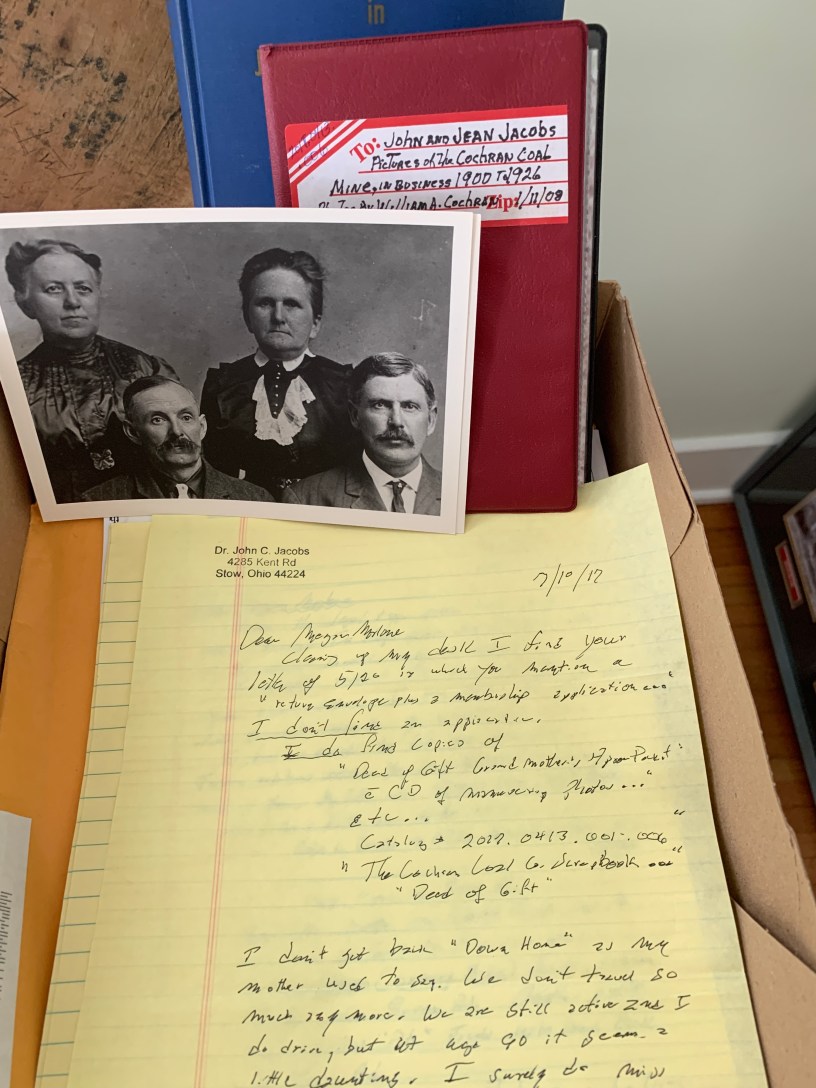 in
To: JOHN AND JEAN JACOBS
PICTURES OF The COCHRAN COAL
MINE, IN BUSINESS 1900 TO 1926
WILLIAM A. COCHRAN Zip: 1/11/08
Dr. John C. Jacobs
4285 Kent Rd
Stow, Ohio 44224
7/10/17
Dear Megan Malone
Cleaning up my desk I find your
letter of 5/26 in which you mention a
"return envelope plus a membership application..."
I don't find an application.
I do find copies of
"Deed of Gift Grandmother's
c̄ CD of Photos..."
Etc...
Catalog # 2017.0413.001-.006"
"The Cochran Coal Co. Scrapbook ..."
"Deed of Gift"
I don't get back "Down Home" as my
mother used to say. We don't travel so
much any more. We are still active and I
do drive, but at age 90 it seems a
little daunting. I surely do miss